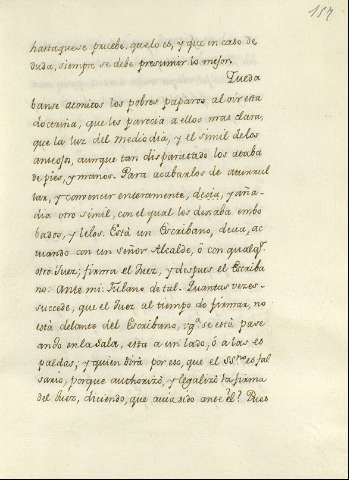 157
hasta que se pruebe, que lo es, y que en caso de
duda, siempre se debe presumir lo mejor.
Queda
banse atonitos los pobres paparos al oir esta
doctrina, que les parecia a ellos mas clara,
que la luz del medio dia, y el simil de los
anteojos, aunque tan disparatado los ataba
de pies, y manos. Para acabarlos de
tar, y convencer enteramente, decia, y aña-
dia otro simil, con el qual los dexaba embo
bados, y lelos. Està un Escribano, decia, ac
tuando con un señor Alcalde, ò con qualqr.
otro Juez; firma el Juez, y despues el Escriba
no: Ante mi: Fulano de tal. Quantas vezes
succede, que el Juez al tiempo de firmar, no
està delante del Escribano, vg.ª se està pase
ando en la Sala, esta a un lado, ò a las es
paldas; y quien dirà por eso, que el SSrno. es fal
sario, porque authorizò, y legalizò la firma
del Juez, diciendo, que avia sido ante èl? Pues